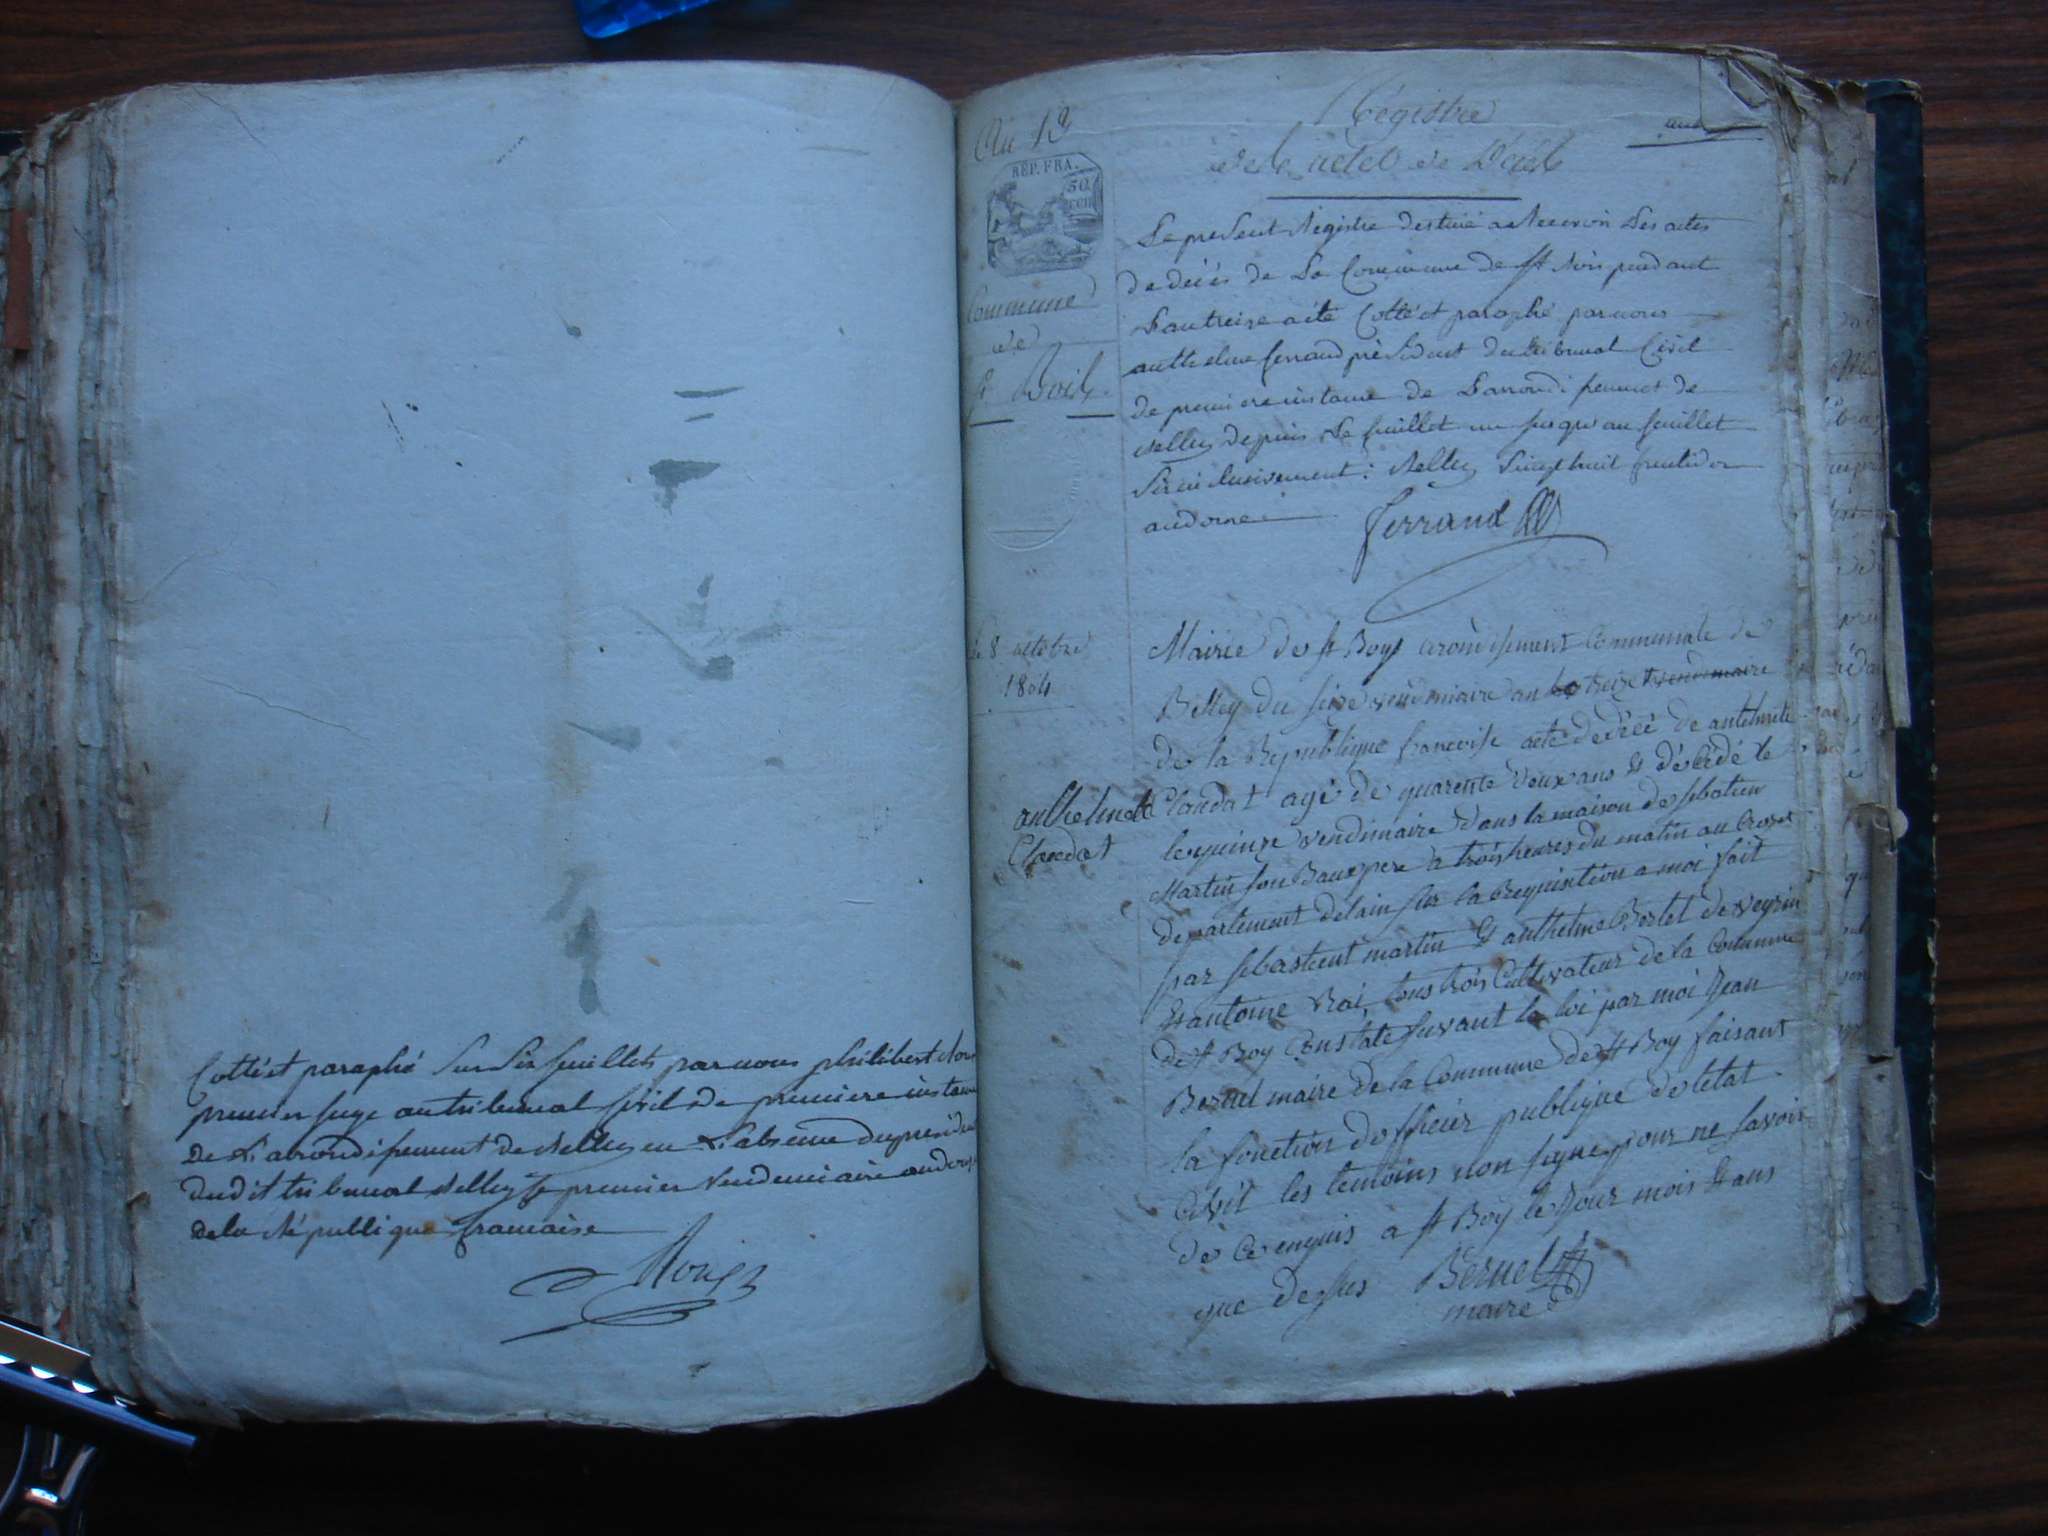 Cotté et paraphé sur six feuillets par nous philibert
premier juge au tribunal sivil de premiere instance
de L'arrondissement de Belley en L'absence du president
dudit tribunal Belley le premier Vendemiaire an
de la République francaise
An 13
REP. FRA.
50
cen
Commune
de
St Bois
Le 8 octobre
1804
anthelme
Claudat
Régistre
des actes de Décès
Le present Régistre destiné a Recevoir Les actes
de décès de La Commune de St Bois pendant
L'an treize a été Cotté et paraphé par nous
anthelme ferrand président du tribunal Civil
de premiere instance de L'arrondissement de
Belley depuis Le feuillet un jusqu'au feuillet
Six inclusivement : Belley Vingt huit fructidor
an douze
ferrand
Mairie de st Boys arondisement Communale de
Belley du seize vendemiaire an treize vendemaire
de la Republique francoise acte de décé de antelme
Claudat agé de quarente deux ans et décédé le
le quinze vendimaire dans la maison de sebatien
Martin son Baux pere a trois heures du matin au
departement de lain sur la Requisition a moi fait
par sebastient martin et anthelme Bertet de veyrin
et antoine tous trois Cultivateur de la Commune
de st Boy Constaté suvant la loi par moi Jean
Bernel maire de la Commune de st Boy faisant
la fonction dofficier publique de letat
Civil les temoins non signe pour ne savoir
de ce enquis a st Boy le jour mois et ans
que dessus Bernel
maire